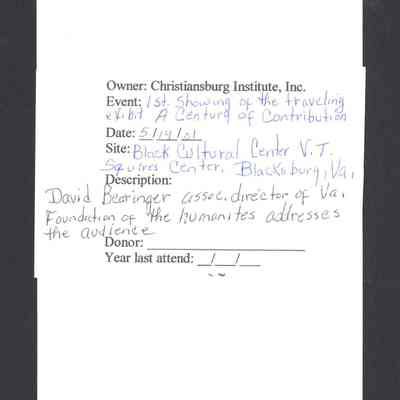 Owner: Christiansburg Institute, Inc.
Event: 1st. Showing of the traveling
exibit A Century of Contribution
Date: 5/19/01
Site: Black Cultural Center V.T.
Squires Center, Blacksburg, Va.
Description:
David Bearinger assoc. director of Va.
Foundation of the humanites addresses
the audience
Donor:
Year last attend: __/__/__